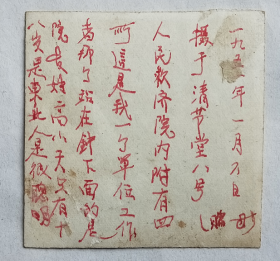 一九五年一月日
摄于清节堂八号
人民救济院内附有四
所这是我一个单位工作
者那个站在针下面的是
院长她高小夫只有十
八岁是东北人是很聪明